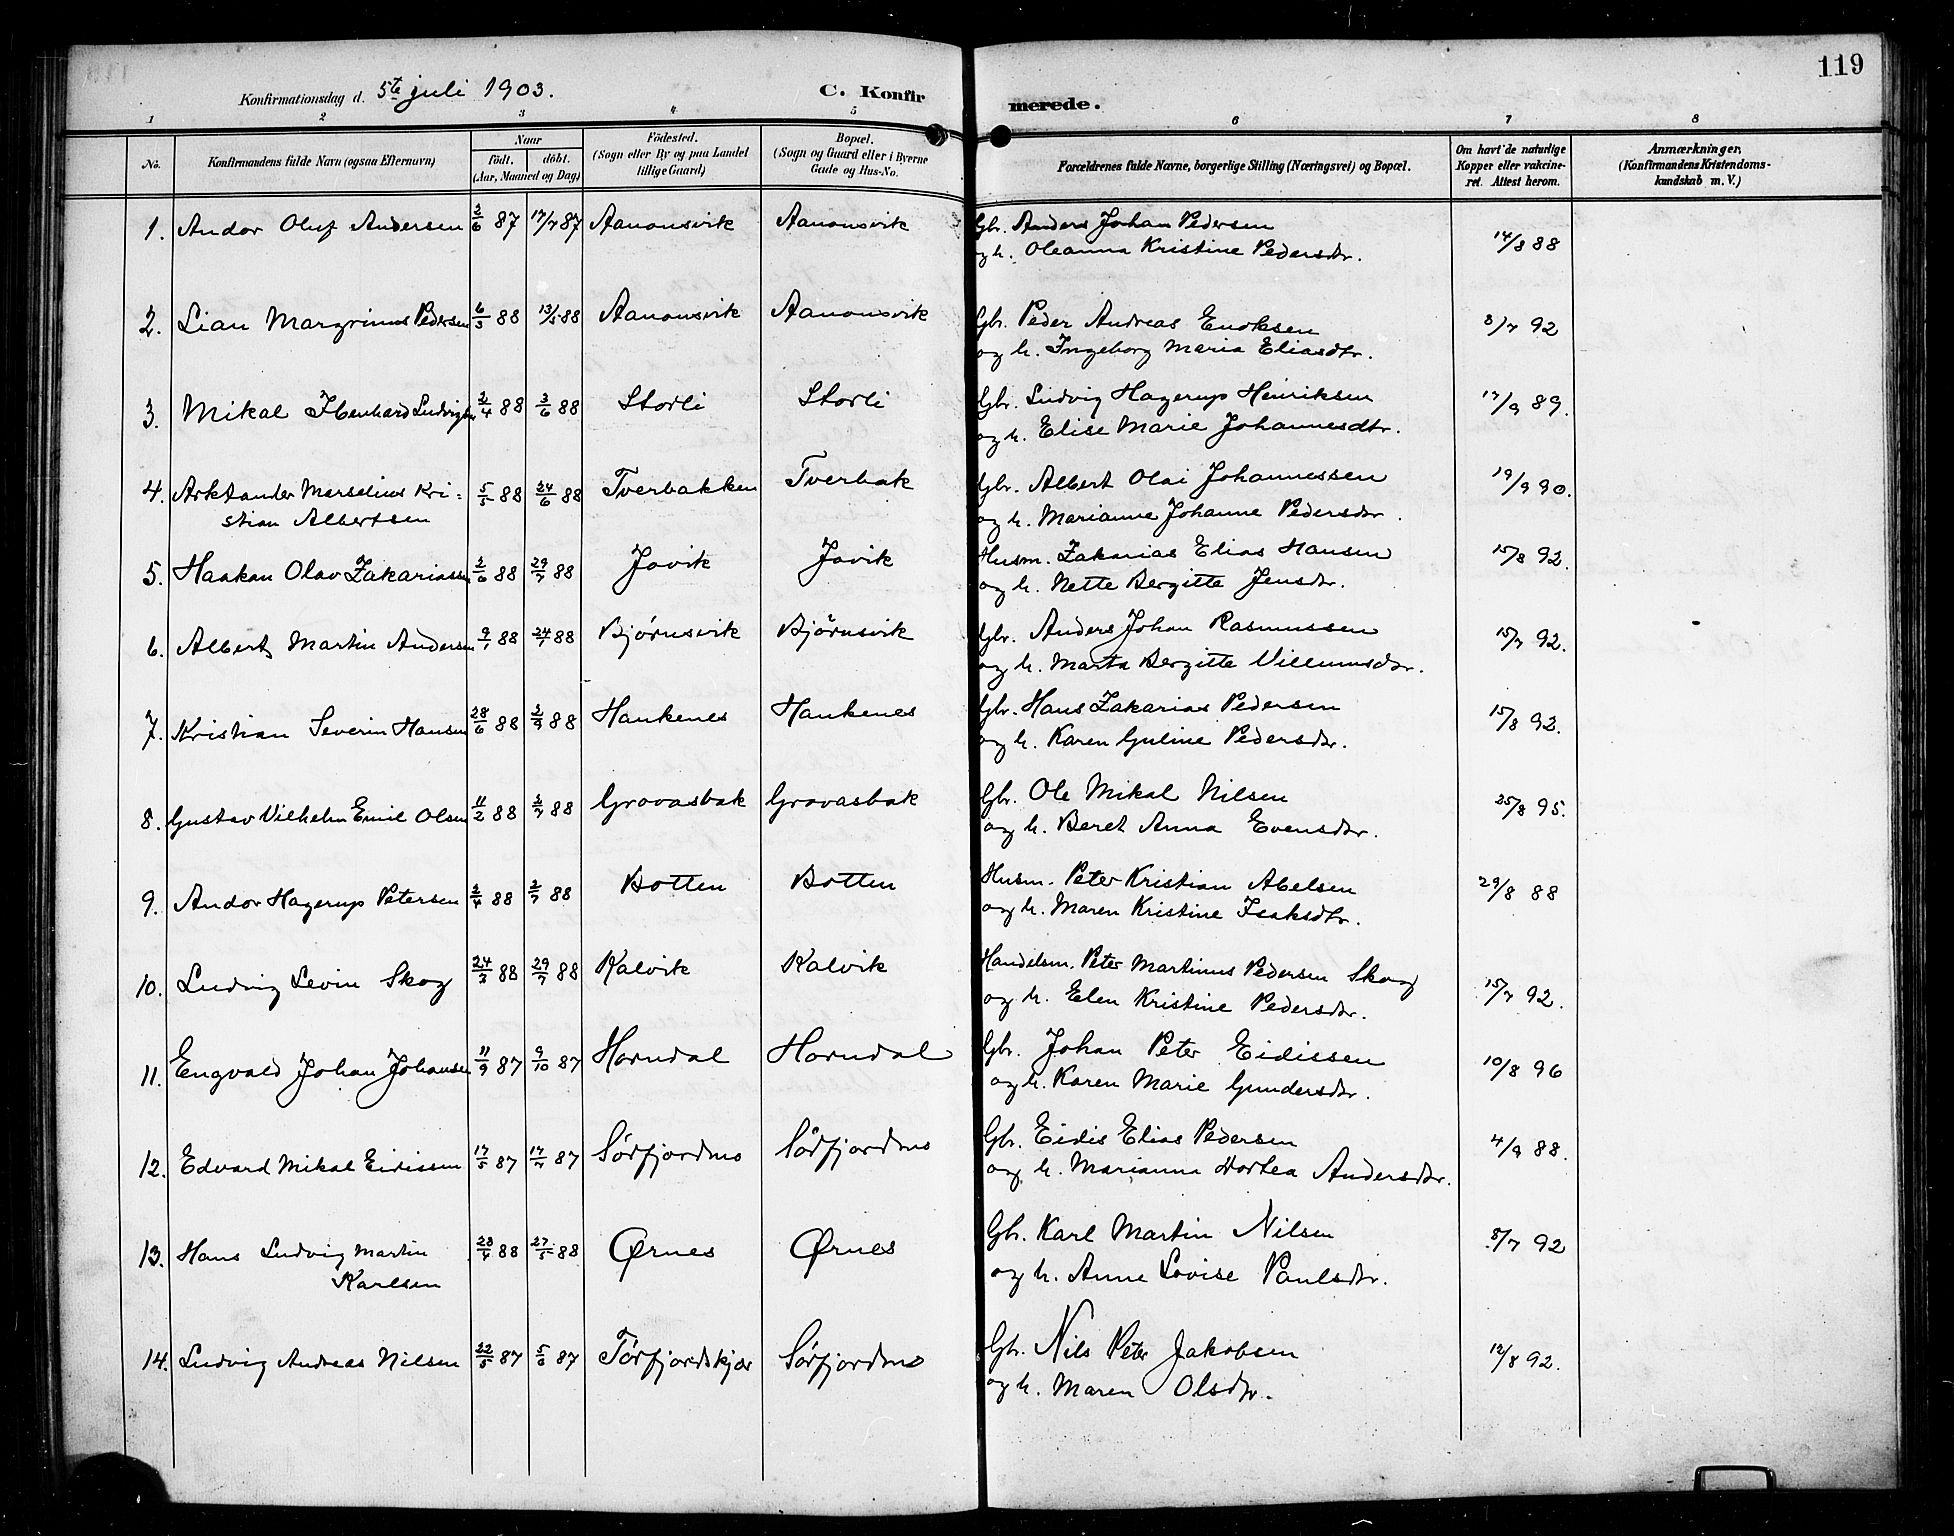 119
Konfirmationsdag d. 5te juli 1903.
C. Konfirmerede.
1 2 3 4 5 6 7 8
No.
Konfirmandens fulde Navn (ogsaa Efternavn)
Naar
födt. döbt.
(Aar, Maaned og Dag)
Födested.
(Sogn eller By og paa Landet
tillige Gaard)
Bopæl.
(Sogn og Gaard eller i Byerne
Gade og Hus-No.
Forældrenes fulde Navne, borgerlige Stilling (Næringsvei) og Bopæl.
Om havt de naturlige
Kopper eller vakcine-
ret. Attest herom.
Anmærkninger,
(Konfirmandens Kristendoms-
kundskab m. V.)
1. Andor Oluf Andersen 2/6 87 17/7 87 Aanonsvik Aanonsvik Gbr. Anders Johan Pedersen 14/8 88
og h. Oleanna Kristine Pedersdtr.
2. Lian Margrinus Pedersen 6/3 88 13/5 88 Aanonsvik Aanonsvik Gbr. Peder Andreas Enoksen 8/7 92
og h. Ingeborg Maria Eliasdtr.
3. Mikal Ludvigsen 2/4 88 3/6 88 Storli Storli Gbr. Ludvig Hagerup Henriksen 17/9 89.
og h. Elise Marie Johannesdtr.
4. Arktander Marselius Kri- 5/5 88 24/6 88 Tverbakken Tverbak Gbr. Albert Olai Johannessen 19/9 90.
stian Albertsen og h. Marianne Johanne Pedersdtr.
5. Haakan Olav Zakariassen 2/6 88 29/7 88 Jovik Jovik Husm. Zakarias Elias Hansen 15/8 92.
og h. Nette Bergitte Jensdtr.
6. Albert Martin Andersen 9/1 88 24/7 88 Bjørnsvik Bjørnsvik Gbr. Anders Johan Rasmussen 15/7 92.
og h. Marta Bergitte Villumsdtr.
7. Kristian Severin Hansen 28/6 88 2/9 88 Haukenes Haukenes Gbr. Hans Zakarias Pedersen 15/8 92.
og h. Karen Guline Pedersdtr.
8. Gustav Vilhelm Emil Olsen 11/2 88 2/7 88 Grovasbak Grovasbak Gbr. Ole Mikal Nilsen 25/8 95.
og h. Beret Anna Evensdtr.
9. Andor Hagerup Petersen 2/4 88 2/7 88 Botten Botten Husm. Peter Kristian Abelsen 29/8 88
og h. Maren Kristine Isaksdtr.
10. Ludvig Levin Skog 24/3 88 29/7 88 Kalvik Kalvik Handelsm. Peter Martinus Pedersen Skog 15/7 92.
og h. Elen Kristine Pedersdtr.
11. Engvald Johan Johansen 11/9 87 9/10 87 Horndal Horndal Gbr. Johan Peter Eidissen 10/8 96
og h. Karen Marie Gundersdtr.
12. Edvard Mikal Eidissen 17/5 87 17/7 87 Sørfjordmo Sørfjordmo Gbr. Eidis Elias Pedersen 4/9 88.
og h. Marianna Dortea Andersdtr.
13. Hans Ludvig Martin 23/4 88 27/5 88 Ørnes Ørnes Gbr. Karl Martin Nilsen 8/7 92
Karlsen og h. Anne Lovise Paulsdtr.
14. Ludvig Andreas Nilsen 22/5 87 5/6 87 Tørfjordskjær Sørfjordmo Gbr. Nils Peter Jakobsen 12/8 92.
og h. Maren Olsdtr.